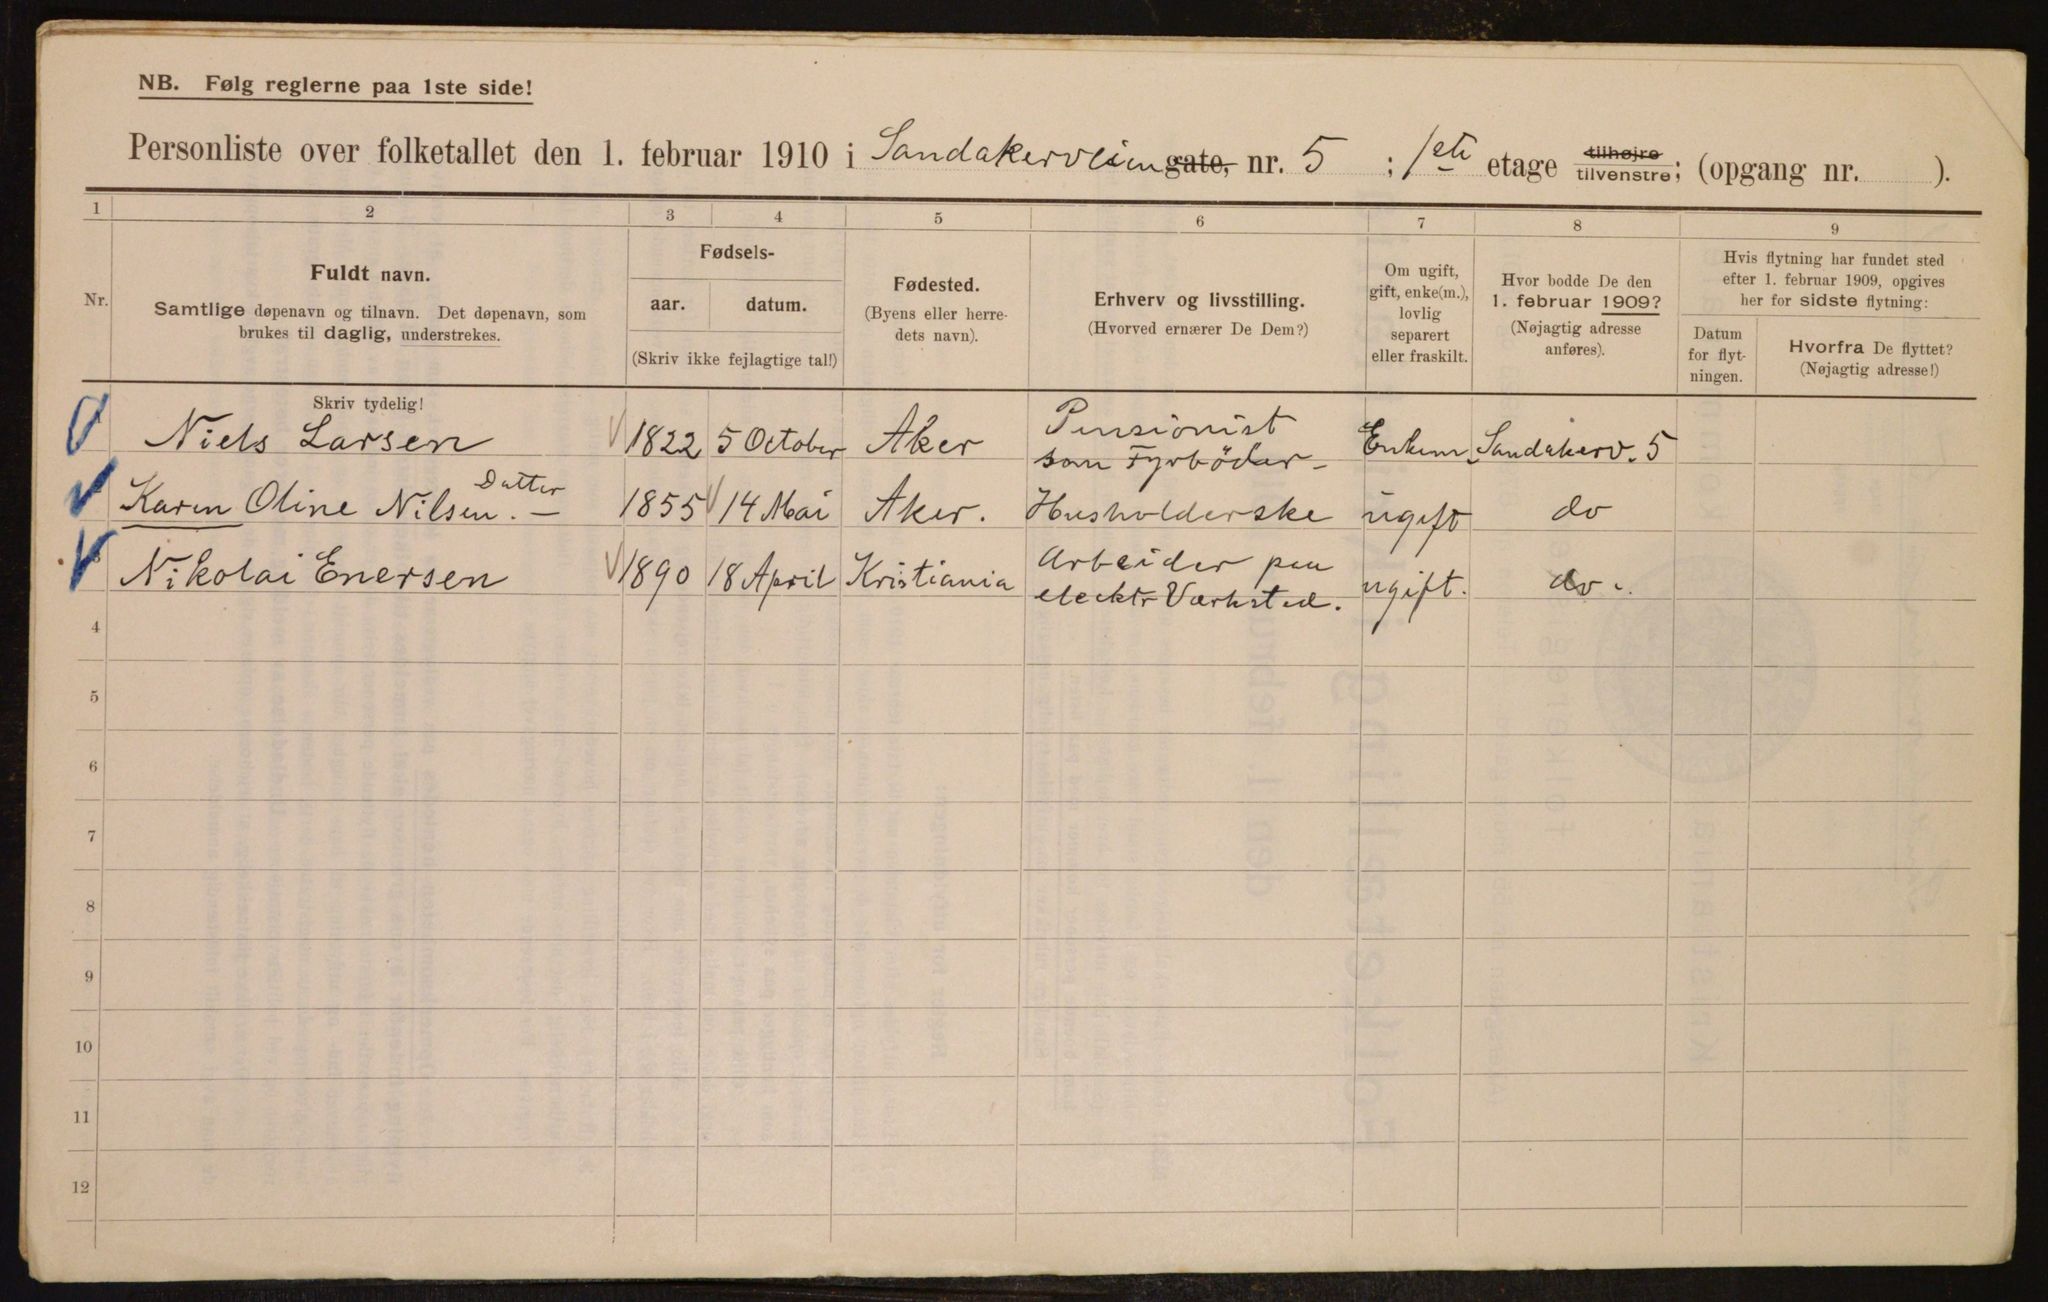 NB. Følg reglerne paa 1ste side!
Personliste over folketallet den 1. februar 1910 i Sandakerveien gate, nr. 5 ; 1ste etage tilhøjre tilvenstre; (opgang nr. ).
1 2 3 4 5 6 7 8 9
Nr.
Fuldt navn.
Samtlige døpenavn og tilnavn. Det døpenavn, som
brukes til daglig, understrekes.
Fødsels-
aar. datum.
(Skriv ikke fejlagtige tal!)
Fødested.
(Byens eller herre-
dets navn).
Erhverv og livsstilling.
(Hvorved ernærer De Dem?)
Om ugift,
gift, enke(m.),
lovlig
separert
eller fraskilt.
Hvor bodde De den
1. februar 1909?
(Nøjagtig adresse
anføres).
Hvis flytning har fundet sted
efter 1. februar 1909, opgives
her for sidste flytning:
Datum
for flyt-
ningen.
Hvorfra De flyttet?
(Nøjagtig adresse!)
Skriv tydelig!
Niels Larsen 1822 5 October Aker Pensionist
som Fyrböder - Enkem. Sandakerv. 5
Datter
Karen Oline Nilsen. - 1855 14 Mai Aker. Husholderske ugift do
Nikolai Enersen 1890 18 April Kristiania Arbeider paa
elecktr Værksted. ugift. do.
4
5
6
7
8
9
10
11
12